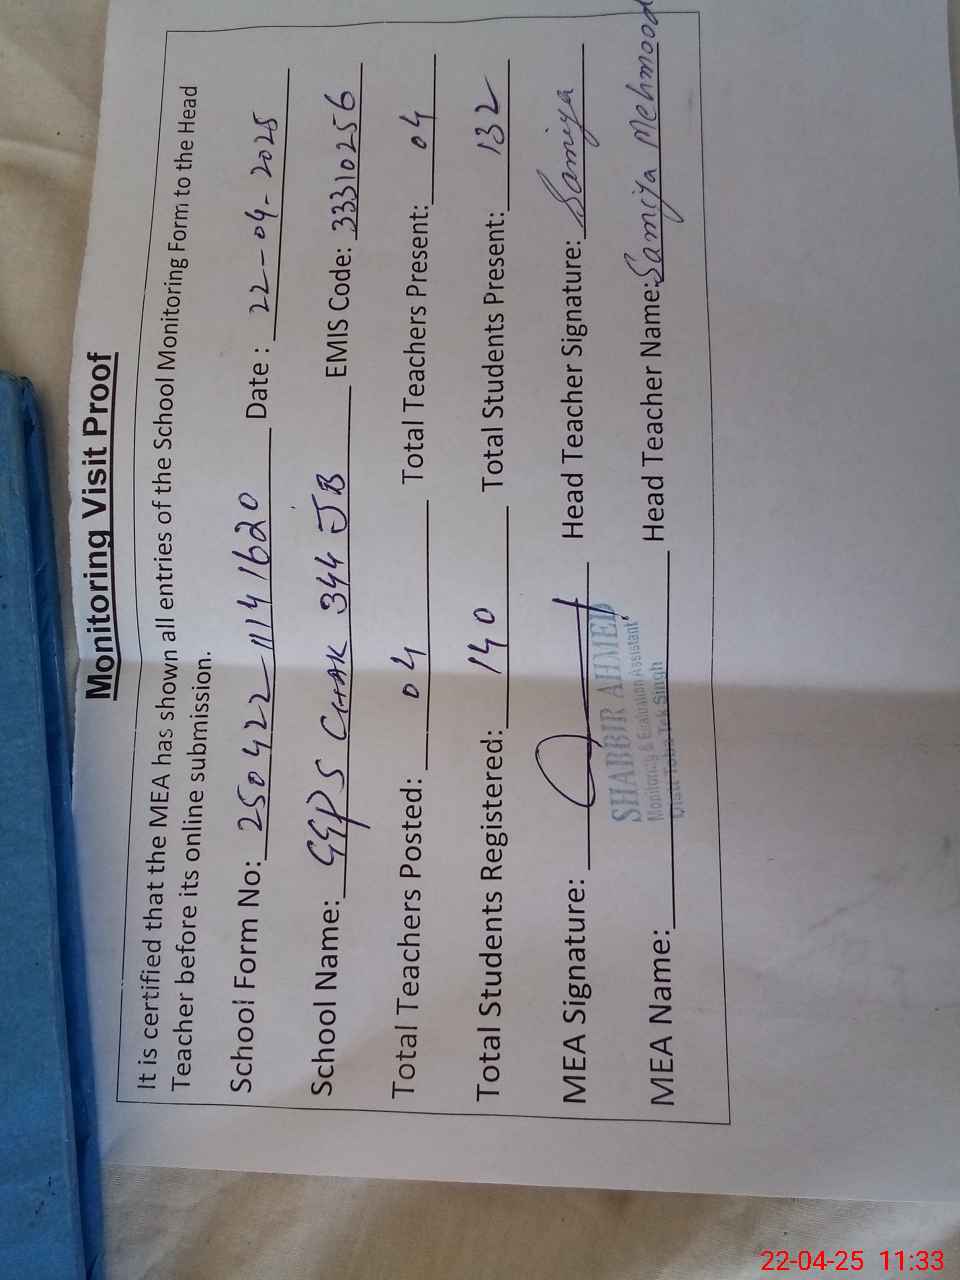 Monitoring Visit Proof
It is certified that the MEA has shown all entries of the School Monitoring Form to the Head
Teacher before its online submission.
School Form No: 250422-11141620 Date : 22-04-2025
School Name: GGPS CHAK 344 JB EMIS Code: 33310256
Total Teachers Posted: 04 Total Teachers Present: 04
Total Students Registered: 140 Total Students Present: 132
MEA Signature: Head Teacher Signature: Samiya
SHABBIR AHMED
Monitoring & Evaluation Assistant
Distt Toba Tek Singh
MEA Name: Head Teacher Name: Samiya Mehmood
22-04-25 11:33